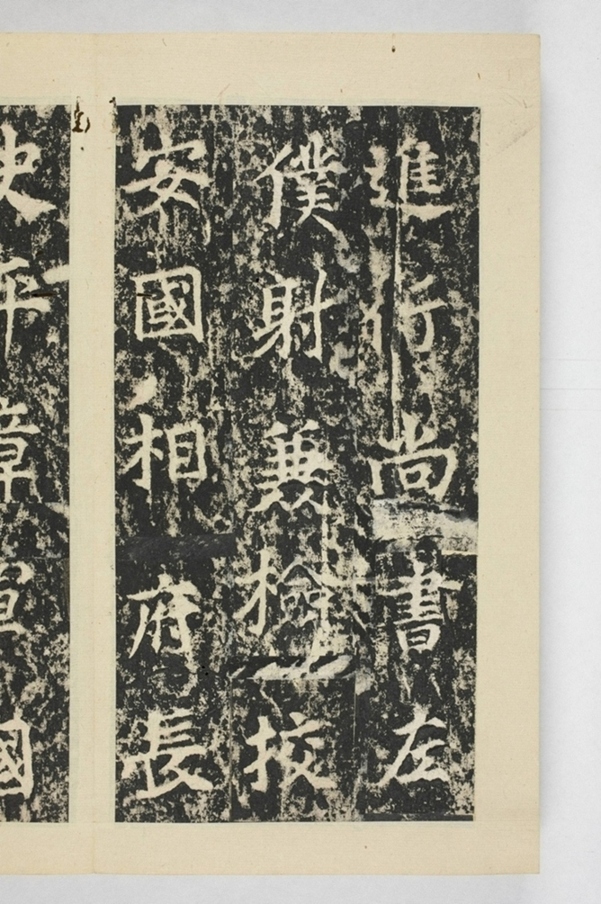 進行尚書左
僕射兼檢校
安國相府長
史平章軍國